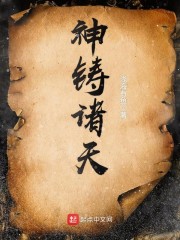 神铸诸天
起点中文网